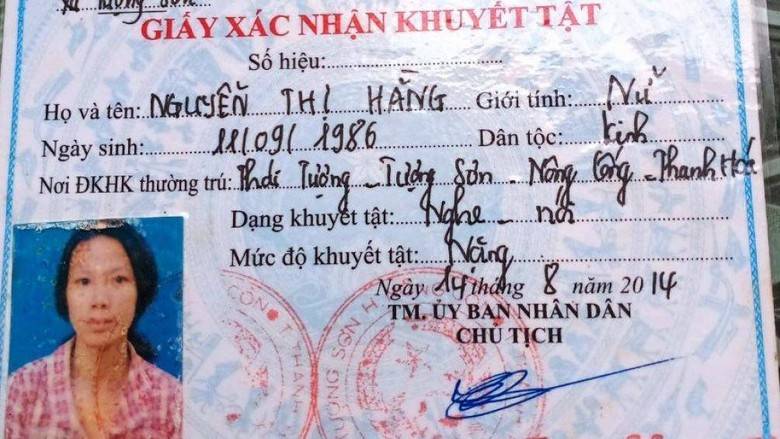 xã Tượng Sơn
GIẤY XÁC NHẬN KHUYẾT TẬT
Số hiệu:
Họ và tên: NGUYỄN THỊ HẰNG Giới tính: Nữ
Ngày sinh: 11/09/1986 Dân tộc: Kinh
Nơi ĐKHK thường trú: Thái Tượng - Tượng Sơn - Nông Cống - Thanh Hóa
Dạng khuyết tật: Nghe - nói
Mức độ khuyết tật: Nặng
Ngày 14 tháng 8 năm 2014
TM. ỦY BAN NHÂN DÂN
CHỦ TỊCH